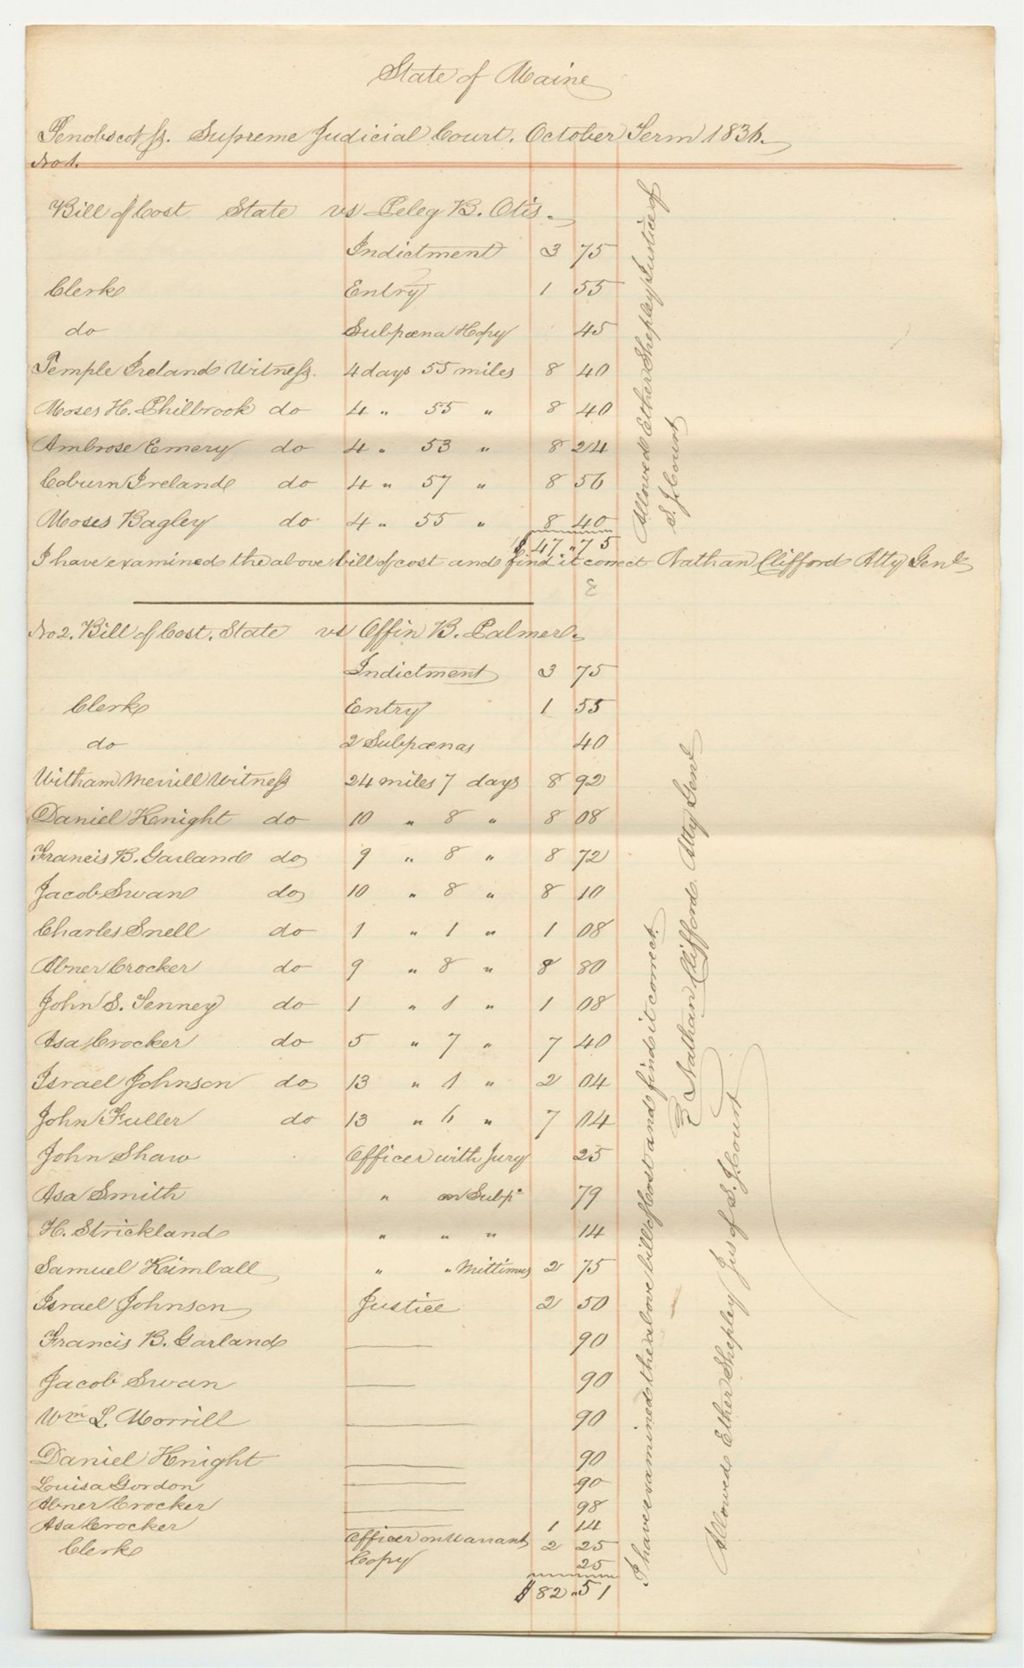 State of Maine
Penobscot ss. Supreme Judicial Court. October Term 1836.
No 1.
Bill of Cost State vs Peleg B. Otis.
Indictment 3 75
Clerk Entry 1 55
do Subpœna & Copy 45
Temple Ireland Witness. 4 days 55 miles 8 40
Moses H. Philbrook do 4 " 55 " 8 40
Ambrose Emery do 4 " 53 " 8 24
Coburn Ireland do 4 " 57 " 8 56
Moses Bagley do 4 " 55 " 8 40
$ 47."75
I have examined the above bill of cost and find it correct Nathan Clifford Atty Genl
Allowed Ether Shepley Justice of
S. J. Court
No 2. Bill of Cost. State vs Offin B. Palmer.
Indictment 3 75
Clerk Entry 1 55
do 2 Subpœnas 40
Witham Merrill Witness 24 miles 7 days 8 92
Daniel Knight do 10 " 8 " 8 08
Francis B. Garland do 9 " 8 " 8 72
Jacob Swan do 10 " 8 " 8 10
Charles Snell do 1 " 1 " 1 08
Abner Crocker do 9 " 8 " 8 80
John S. Tenney do 1 " 1 " 1 08
Asa Crocker do 5 " 7 " 7 40
Israel Johnson do 13 " 1 " 2 04
John Fuller do 13 " 6 " 7 04
John Shaw Officer with Jury 25
Asa Smith " on Subpa 79
H. Strickland " " " 14
Samuel Kimball " " Mittimus 2 75
Israel Johnson Justice 2 50
Francis B. Garland 90
Jacob Swan 90
Wm L. Morrill 90
Daniel Knight 90
Louisa Gordon 90
Abner Crocker 98
Asa Crocker 1 14
Officer on Warrant 2 25
Clerk Copy 25
$ 82"51
I have examined the above bill of Cost and find it correct.
Nathan Clifford Atty Genl
Allowed Ether Shepley Jus of S. J. Court